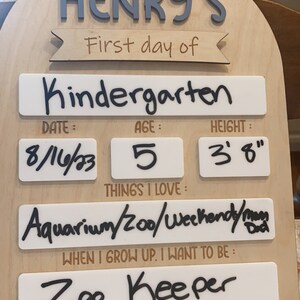 HENRY'S
First day of
Kindergarten
DATE: AGE: HEIGHT:
8/16/23 5 3' 8"
THINGS I LOVE:
Aquarium/Zoo/Weekends/Mom
Dad
WHEN I GROW UP, I WANT TO BE:
Zoo Keeper